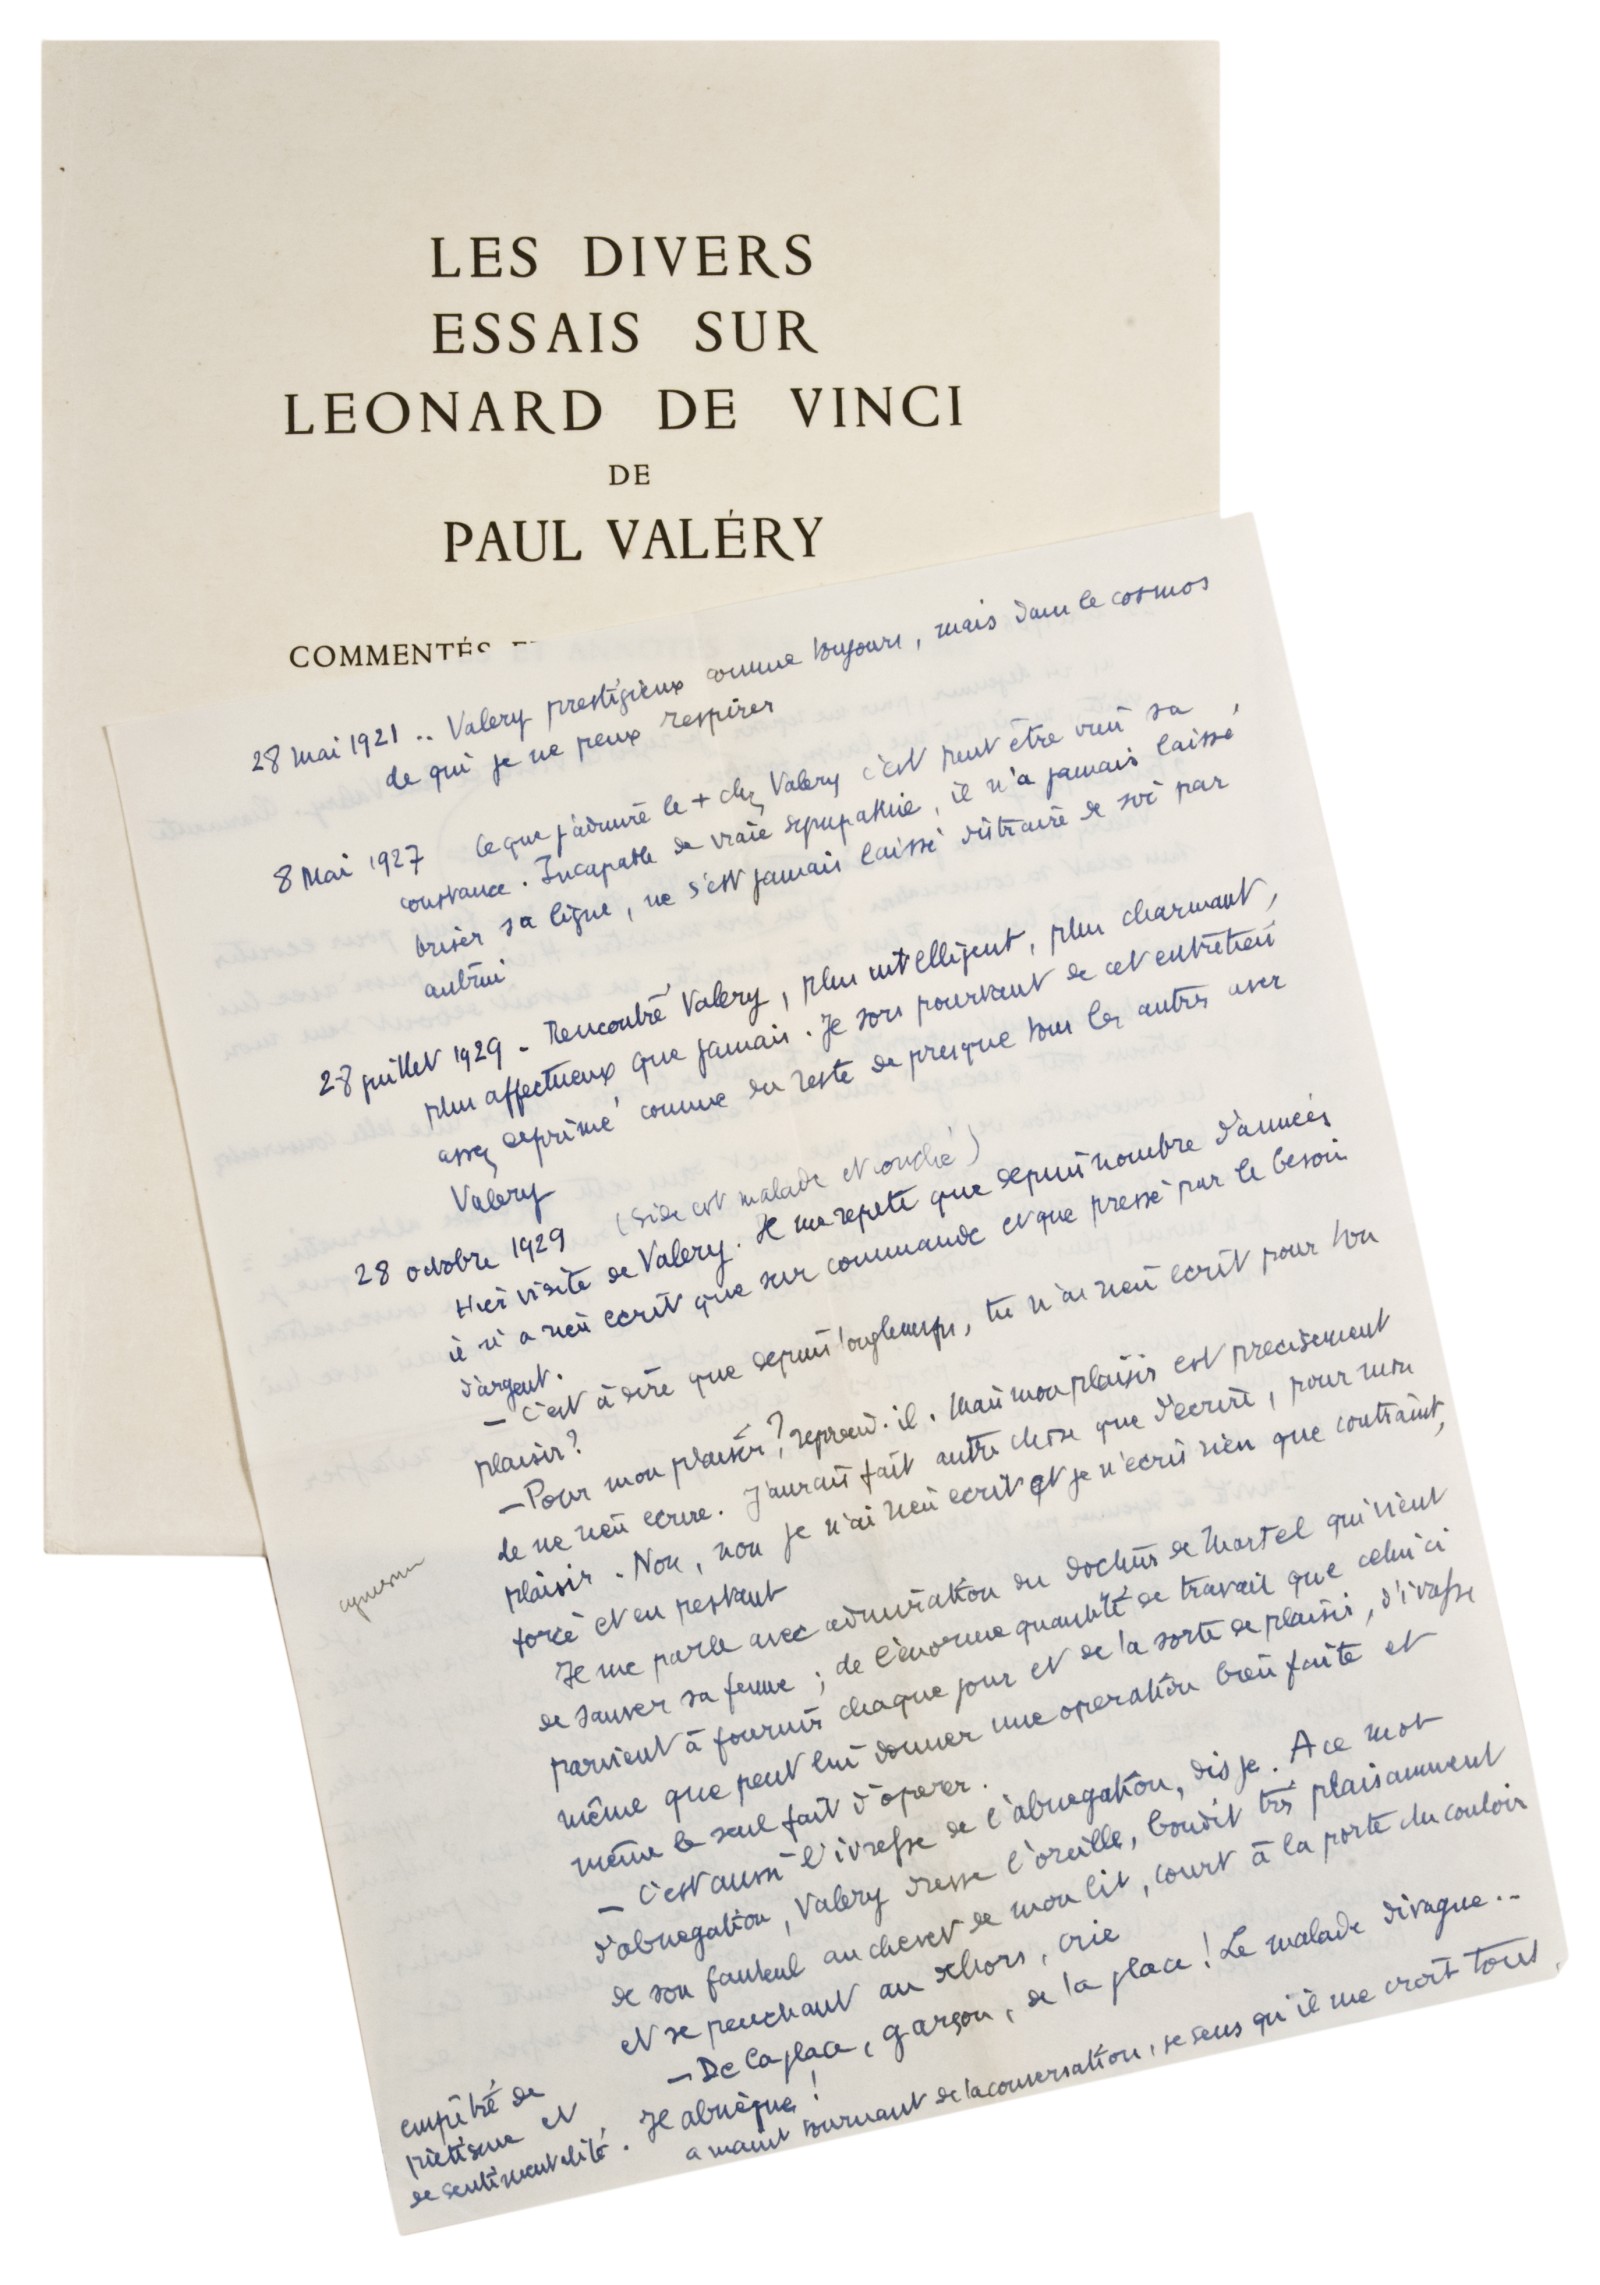 LES DIVERS
ESSAIS SUR
LEONARD DE VINCI
DE
PAUL VALÉRY
COMMENTÉS
28 mai 1921 .. Valery prestigieux comme toujours, mais dans le cosmos
de qui je ne peux respirer
8 Mai 1927 Ce que j'admire le + chez Valery c'est peut être bien sa
constance. Incapable de vraie sympathie, il n'a jamais laissé
briser sa ligne, ne s'est jamais laissé distraire de soi par
autrui
28 juillet 1929 - Rencontré Valery, plus intelligent, plus charmant,
plus affectueux que jamais. Je sors pourtant de cet entretien
assez deprimé comme du reste de presque tous les autres avec
Valery
28 octobre 1929 (Gide est malade et couché)
Hier visite de Valery. Il me repete que depuis nombre d'années
il n'a rien ecrit que sur commande et que pressé par le besoin
d'argent.
— C'est à dire que depuis longtemps, tu n'as rien ecrit pour ton
plaisir?
— Pour mon plaisir?, reprend-il. Mais mon plaisir est precisement
de ne rien ecrire. J'aurais fait autre chose que d'ecrire, pour mon
plaisir. Non, non je n'ai rien ecrit et je n'ecris rien que contraint,
forcé et en pestant
Il me parle avec admiration du docteur de Martel qui vient
de sauver sa femme ; de l'énorme quantité de travail que celui ci
parvient à fournir chaque jour et de la sorte de plaisir, d'ivresse
même que peut lui donner une operation bien faite et
même le seul fait d'operer.
— C'est aussi l'ivresse de l'abnegation, dis je. A ce mot
d'abnegation, Valery dresse l'oreille, bondit très plaisamment
de son fauteuil au chevet de mon lit, court à la porte du couloir
et se penchant au dehors, crie
— De la glace, garçon, de la glace! Le malade divague..
Il abnègue!
a maint tournant de la conversation, je sens qu'il me croit tout
empêtré de
piétisme et
de sentimentalité.